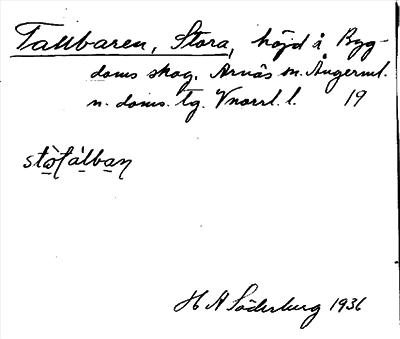 Tallbaren, Stora, höjd å Byg-
doms skog. Arnäs sn. Ångerml.
n. doms. tg. Vnorrl. l. 19
stò̱fa̱lba̱ṉ
H A Söderburg 1936